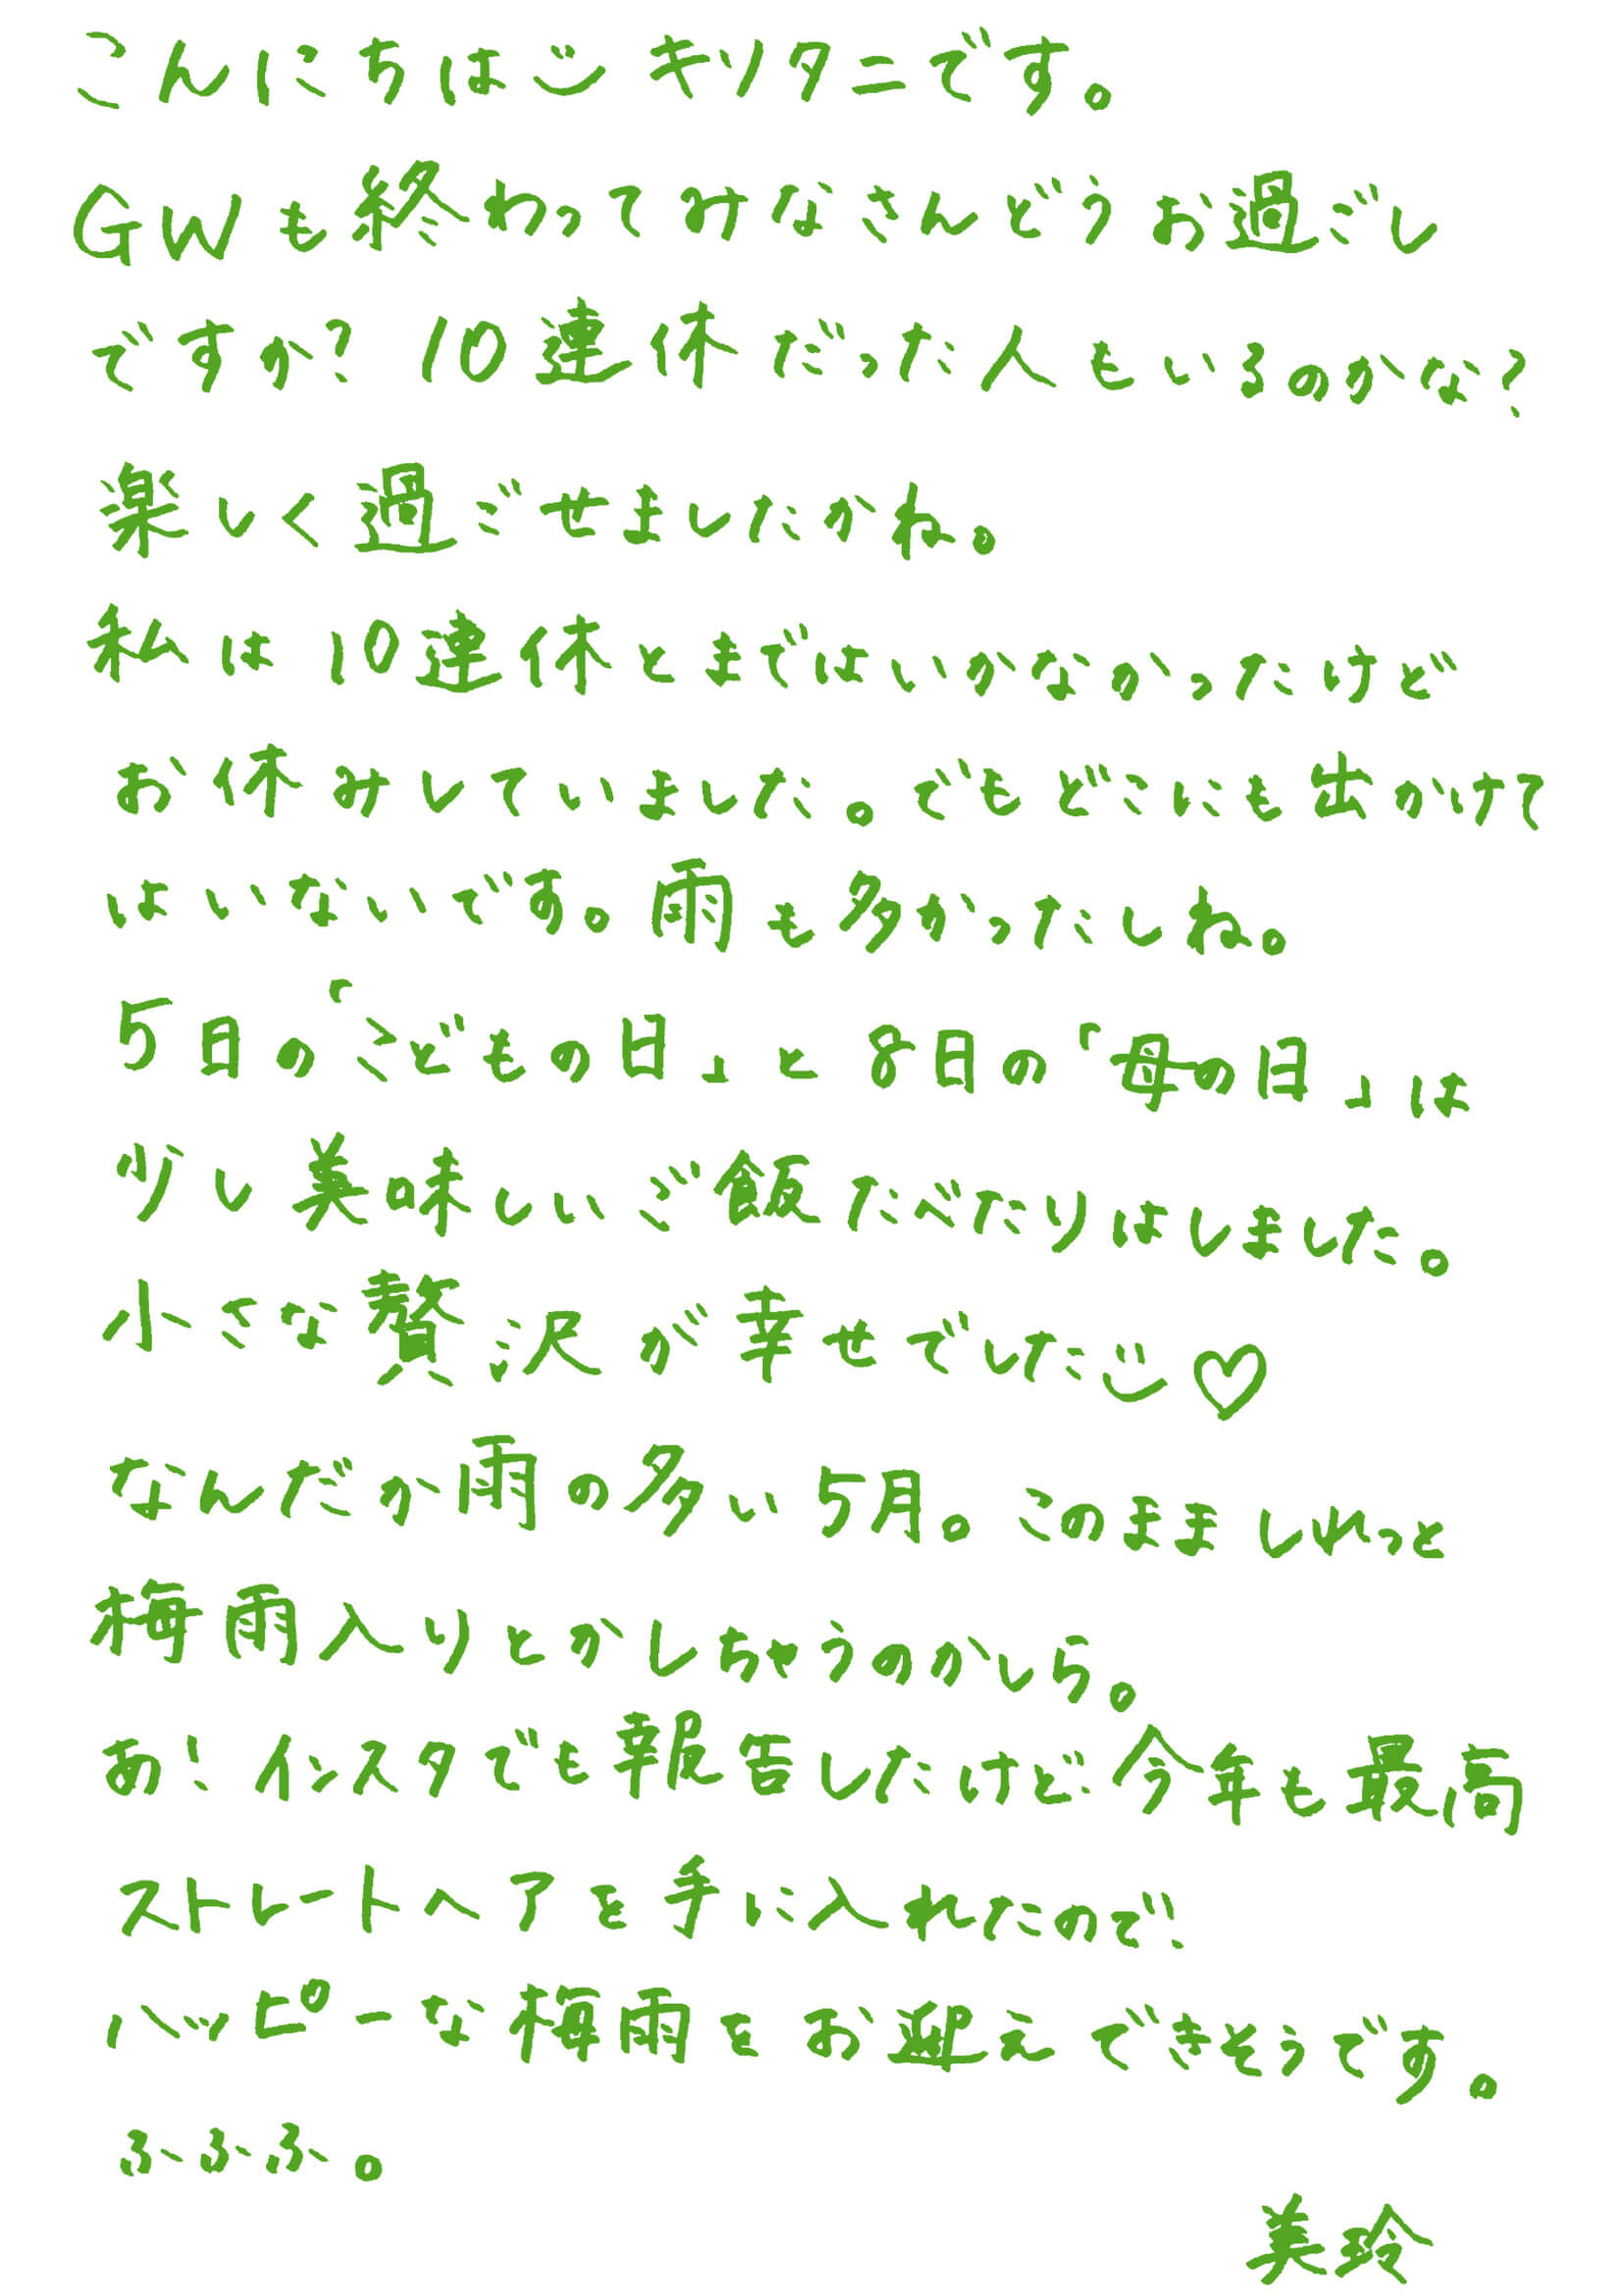 こんにちは キリタニです。
GWも終わってみなさんどうお過ごし
ですか? 10連休だった人もいるのかな?
楽しく過ごせましたかね。
私は10連休とまではいかなかったけど
お休みしていました。でもどこにも出かけて
はいないです。雨も多かったしね。
5日の「こどもの日」と8日の「母の日」は
少し美味しいご飯たべたりはしました。
小さな贅沢が幸せでした♡
なんだか雨の多い5月。このまましれっと
梅雨入りとかしちゃうのかしら。
あ! インスタでも報告したけど、今年も最高
ストレートヘアを手に入れたので、
ハッピーな梅雨をお迎えできそうです。
ふふふ。
美玲